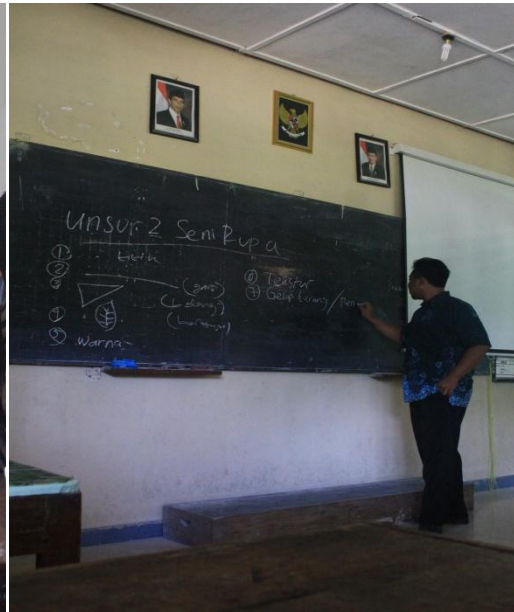 Unsur2 Seni Rupa
① titik
②
③ (garis)
(bidang)
④
⑤ warna
⑥ Tekstur
⑦ Gelap terang /